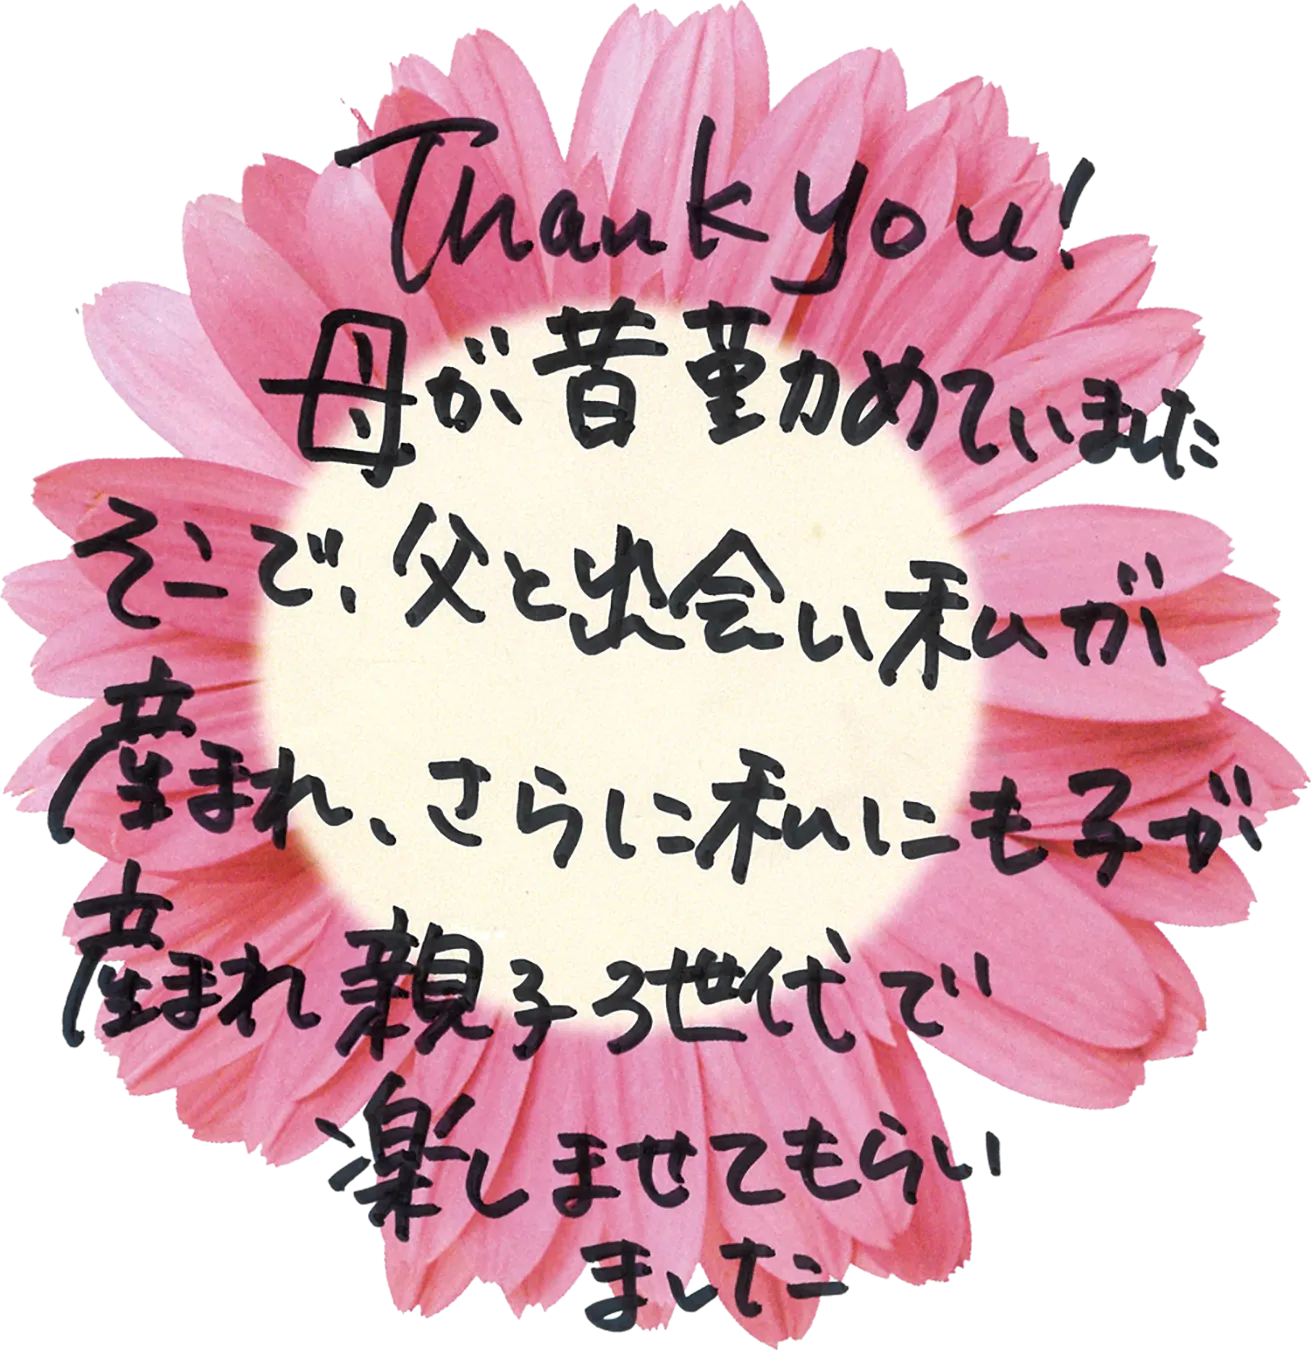 Thank you!
母が昔勤めていました
そこで、父と出会い私が
産まれ、さらに私にも子が
産まれ親子3世代で
楽しませてもらい
ました